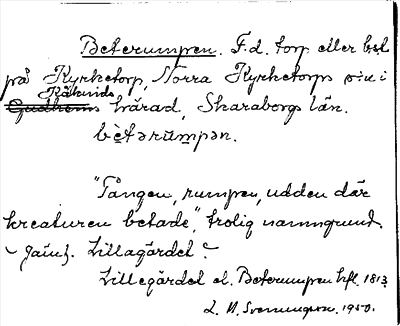 Beterumpen. F.d. torp eller bst
på Kyrketorp, Norra Kyrketorps sn i
Kåkinds
Gudhems härad, Skaraborgs län.
bètərùmpən.
"Tången, rumpen, udden där
kreaturen betade", trolig namngrund.
Jämf. Lillagärdet?
Lillegärdet el. Beterumpen hfl. 1813.
L. M. Svenungsson. 1950.